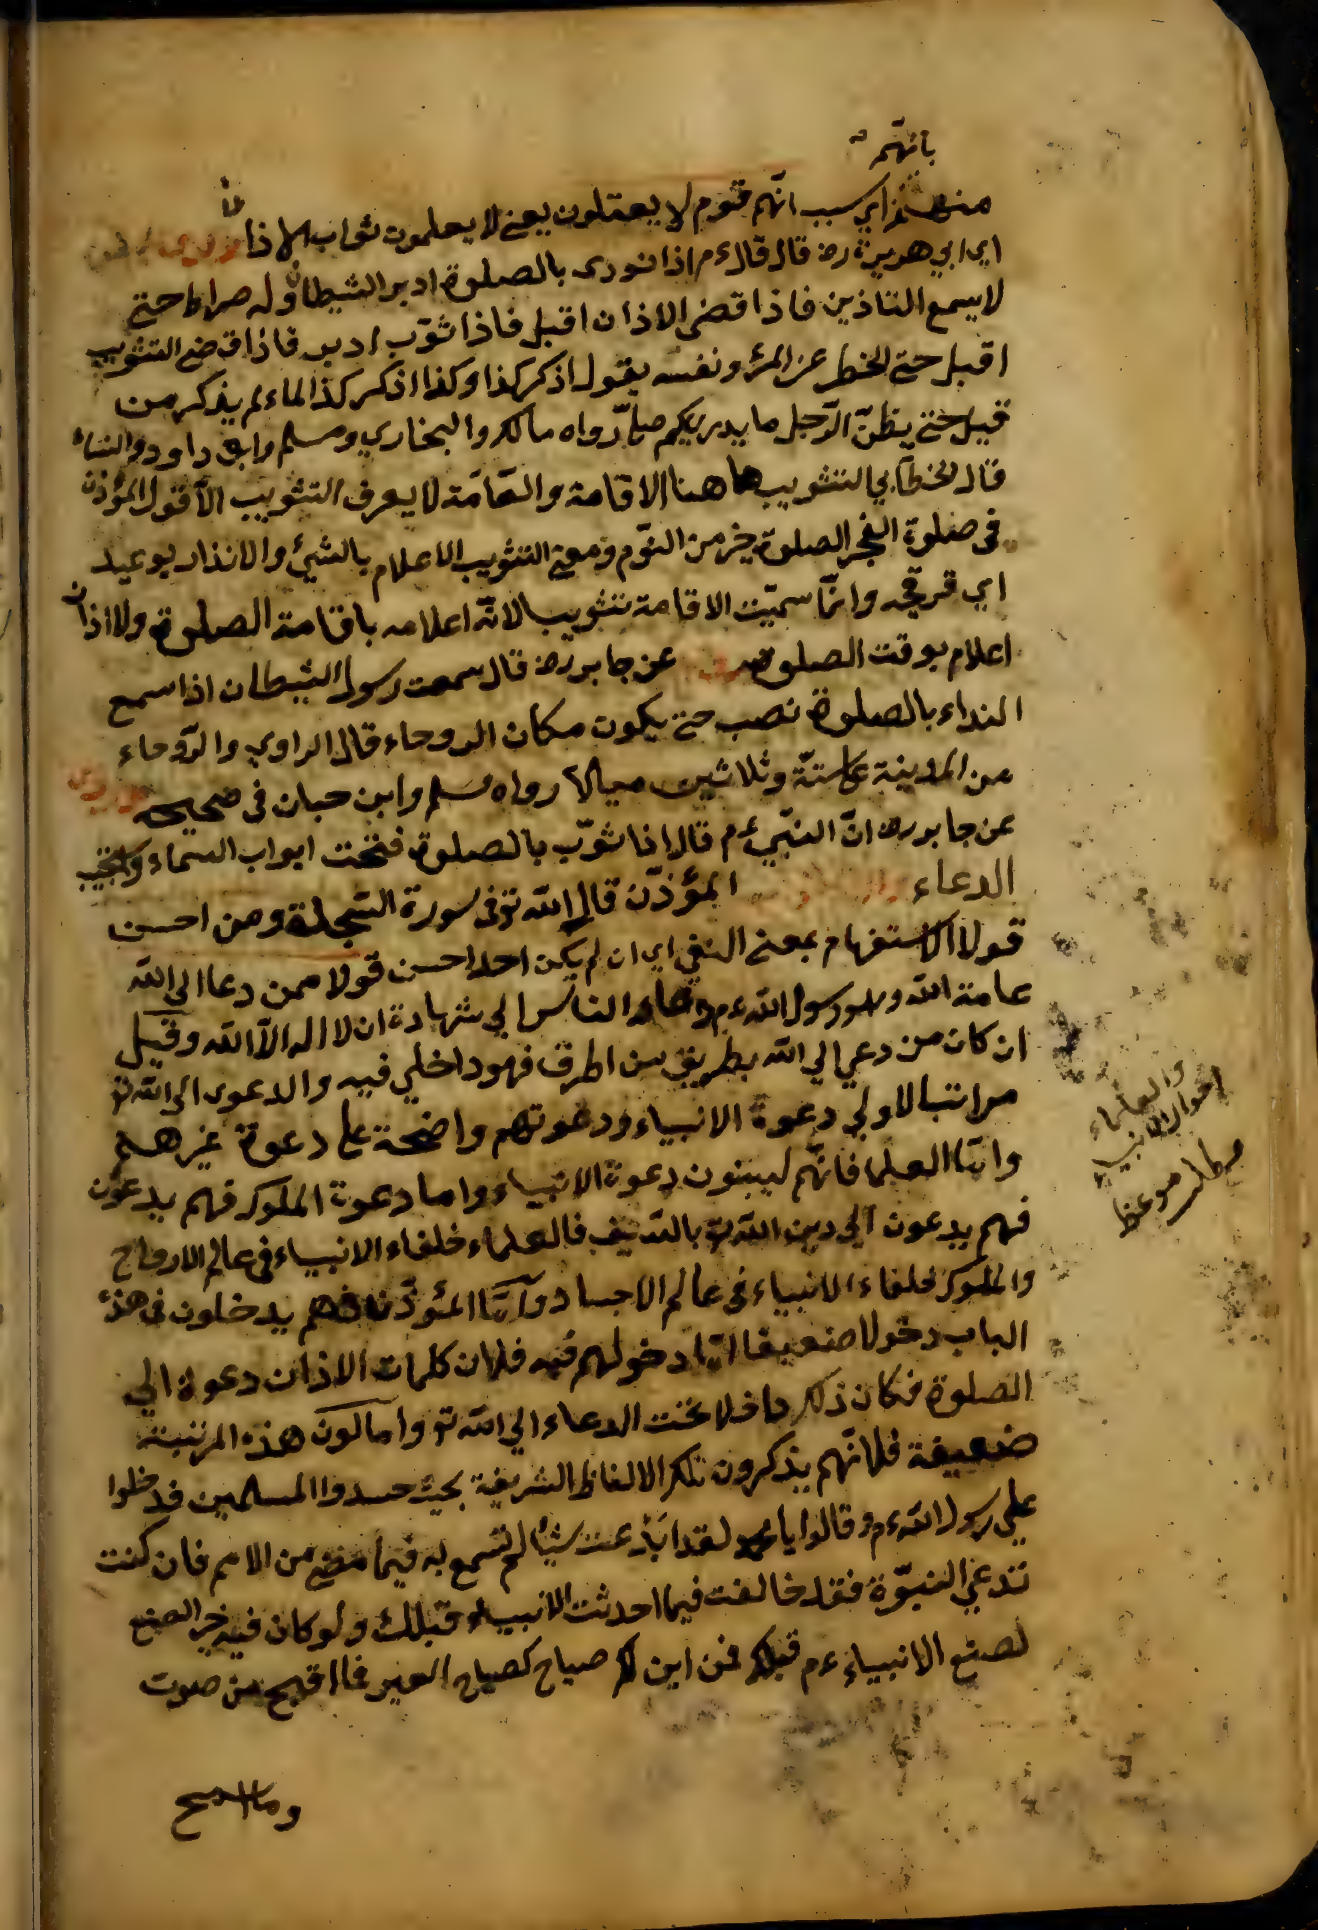 بانهّم
منهم اي سبب انّهم قوم لا يعقلون يعني لا يعلمون ثواب الاذان
اي ابي هريرة رض قال قال ءم اذا نودى بالصلوة ادبر الشيطان وله صراط حتى
لا يسمع التاذين فاذا قضى الاذان اقبل فاذا ثوّب ادبر فاذا قضى التثويب
اقبل حتى الخطر عن المرؤ ونفسه يقول اذكر كذا وكذا اذكر كذا لما لم يذكر من
قبل حتى يظنّ الرّجل ما يدري كم صلّ رواه مالك والبخاري ومسلم وابو داود والنساء
قال الخطّابي التثويب هاهنا الاقامة والعّامّة لا يعرف التثويب الّا قول المؤذن
في صلوة الفجر الصلوة خير من النوّم ومعنى التثويب الاعلام بالشيئ والانذار بوعيد
اي قرقچه وانّما سميّت الاقامة تثويبا لانّه اعلامه باقامة الصلوة ولا اذان
اعلام بوقت الصلوة عن جابر رض قال سمعت رسول الشيطان اذا سمع
النداء بالصلوة نصب حتى يكون مكان الروحاء قال الراوي والرّوحاء
من المدينة على ستّة وثلاثين ميالا رواه مسلم وابن حبان في صحيحه
عن جابر رض انّ النبّي ءم قال اذا ثوّب بالصلوة فتحت ابواب السماء واستجيب
الدعاء المؤذّن قال الله تع في سورة السّجدة ومن احسن
قولا الاستفهام بمعنى النفي اي ان لم يكن احدا احسن قولا ممن دعا الى الله
عامة الله وهو رسول الله ءم دعاء الناس الي شهادة ان لا اله الّا الله وقيل
ان كان من دعي الي الله بطريق من الطرق فهو داخلي فيه والدعوى الى الله تع
مراتب الاولي دعوة الانبياء ودعوتهم واضحة على دعوة غيرهم
وامّا العلما فانّهم ليبنون دعوة الانبياء واما دعوة الملوك فهم يدعون
فهم يدعون الي دين الله تع بالسّيف فالعلماء خلفاء الانبياء في عالم الارواح
والملوك خلفاء الانبياء في عالم الاجساد وامّا المئوذّنان فهم يدخلون في هذه
الباب دخولا ضعيفا امّا دخولهم فيه فلان كلمات الاذان دعوة الي
الصلوة فكان ذلك داخلا تحت الدعاء الي الله تع واما كون هذه المرتبة
ضعيفة فلانّهم يذكرون تلك الالفاظ الشريفة بحيث حسدوا المسلمين فدخلوا
علي رسول الله ءم وقالوا يا محمد لقد ابدعت شيأ لم تسمع به فيما مضى من الامم فان كنت
تدعي النبوّة فقد خالفت فيما احدثت الانبياء قبلك ولو كان فيه خير الصنع
لصنع الانبياء ءم قبلك فمن اين لك صياح كصياح العير فما اقبح من صوت
وما اسمج
والعلماء
احوال الانبياء
مطلب موعظ